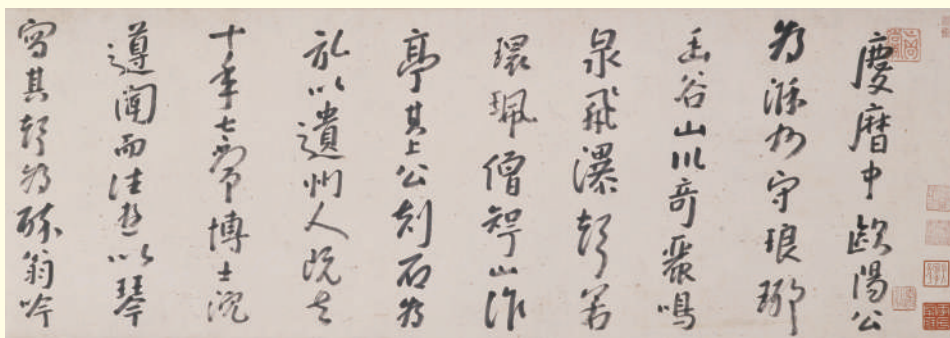 慶曆中歐陽公
為滁州守琅琊
幽谷山川奇麗鳴
泉飛瀑聲若
環珮僧智山作
亭其上公刻石為
記以遺州人既去
十年太常博士沈
遵聞而往遊以琴
寫其聲為醉翁吟